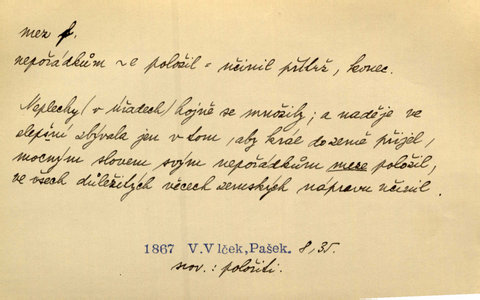 mez f.
nepořádkům ~e položil = učinil přítrž, konec.
Neplechy (v úřadech) hojně se množily; a naděje ve
zlepšení zbývala jen v tom, aby král do země přijel,
mocným slovem svým nepořádkům meze položil,
ve všech důležitých věcech zemských nápravu učinil.
1867 V.Vlček, Pašek. 8, 35.
srov.: položiti.